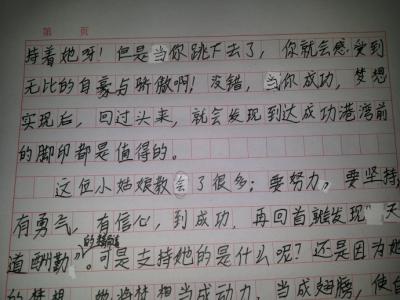 第 页
持着她呀！但是当你跳下去了，你就会感受到
无比的自豪与骄傲啊！没错，当你成功，梦想
实现后，回过头来，就会发现到达成功港湾前
的脚印都是值得的。
这位小姑娘教会了很多；要努力，要坚持，
有勇气，有信心，到成功，再回首就发现“天
道酬勤”的。可是支持她的是什么呢？还是因为她
的梦想，她将梦想当成动力，当成翅膀，使自